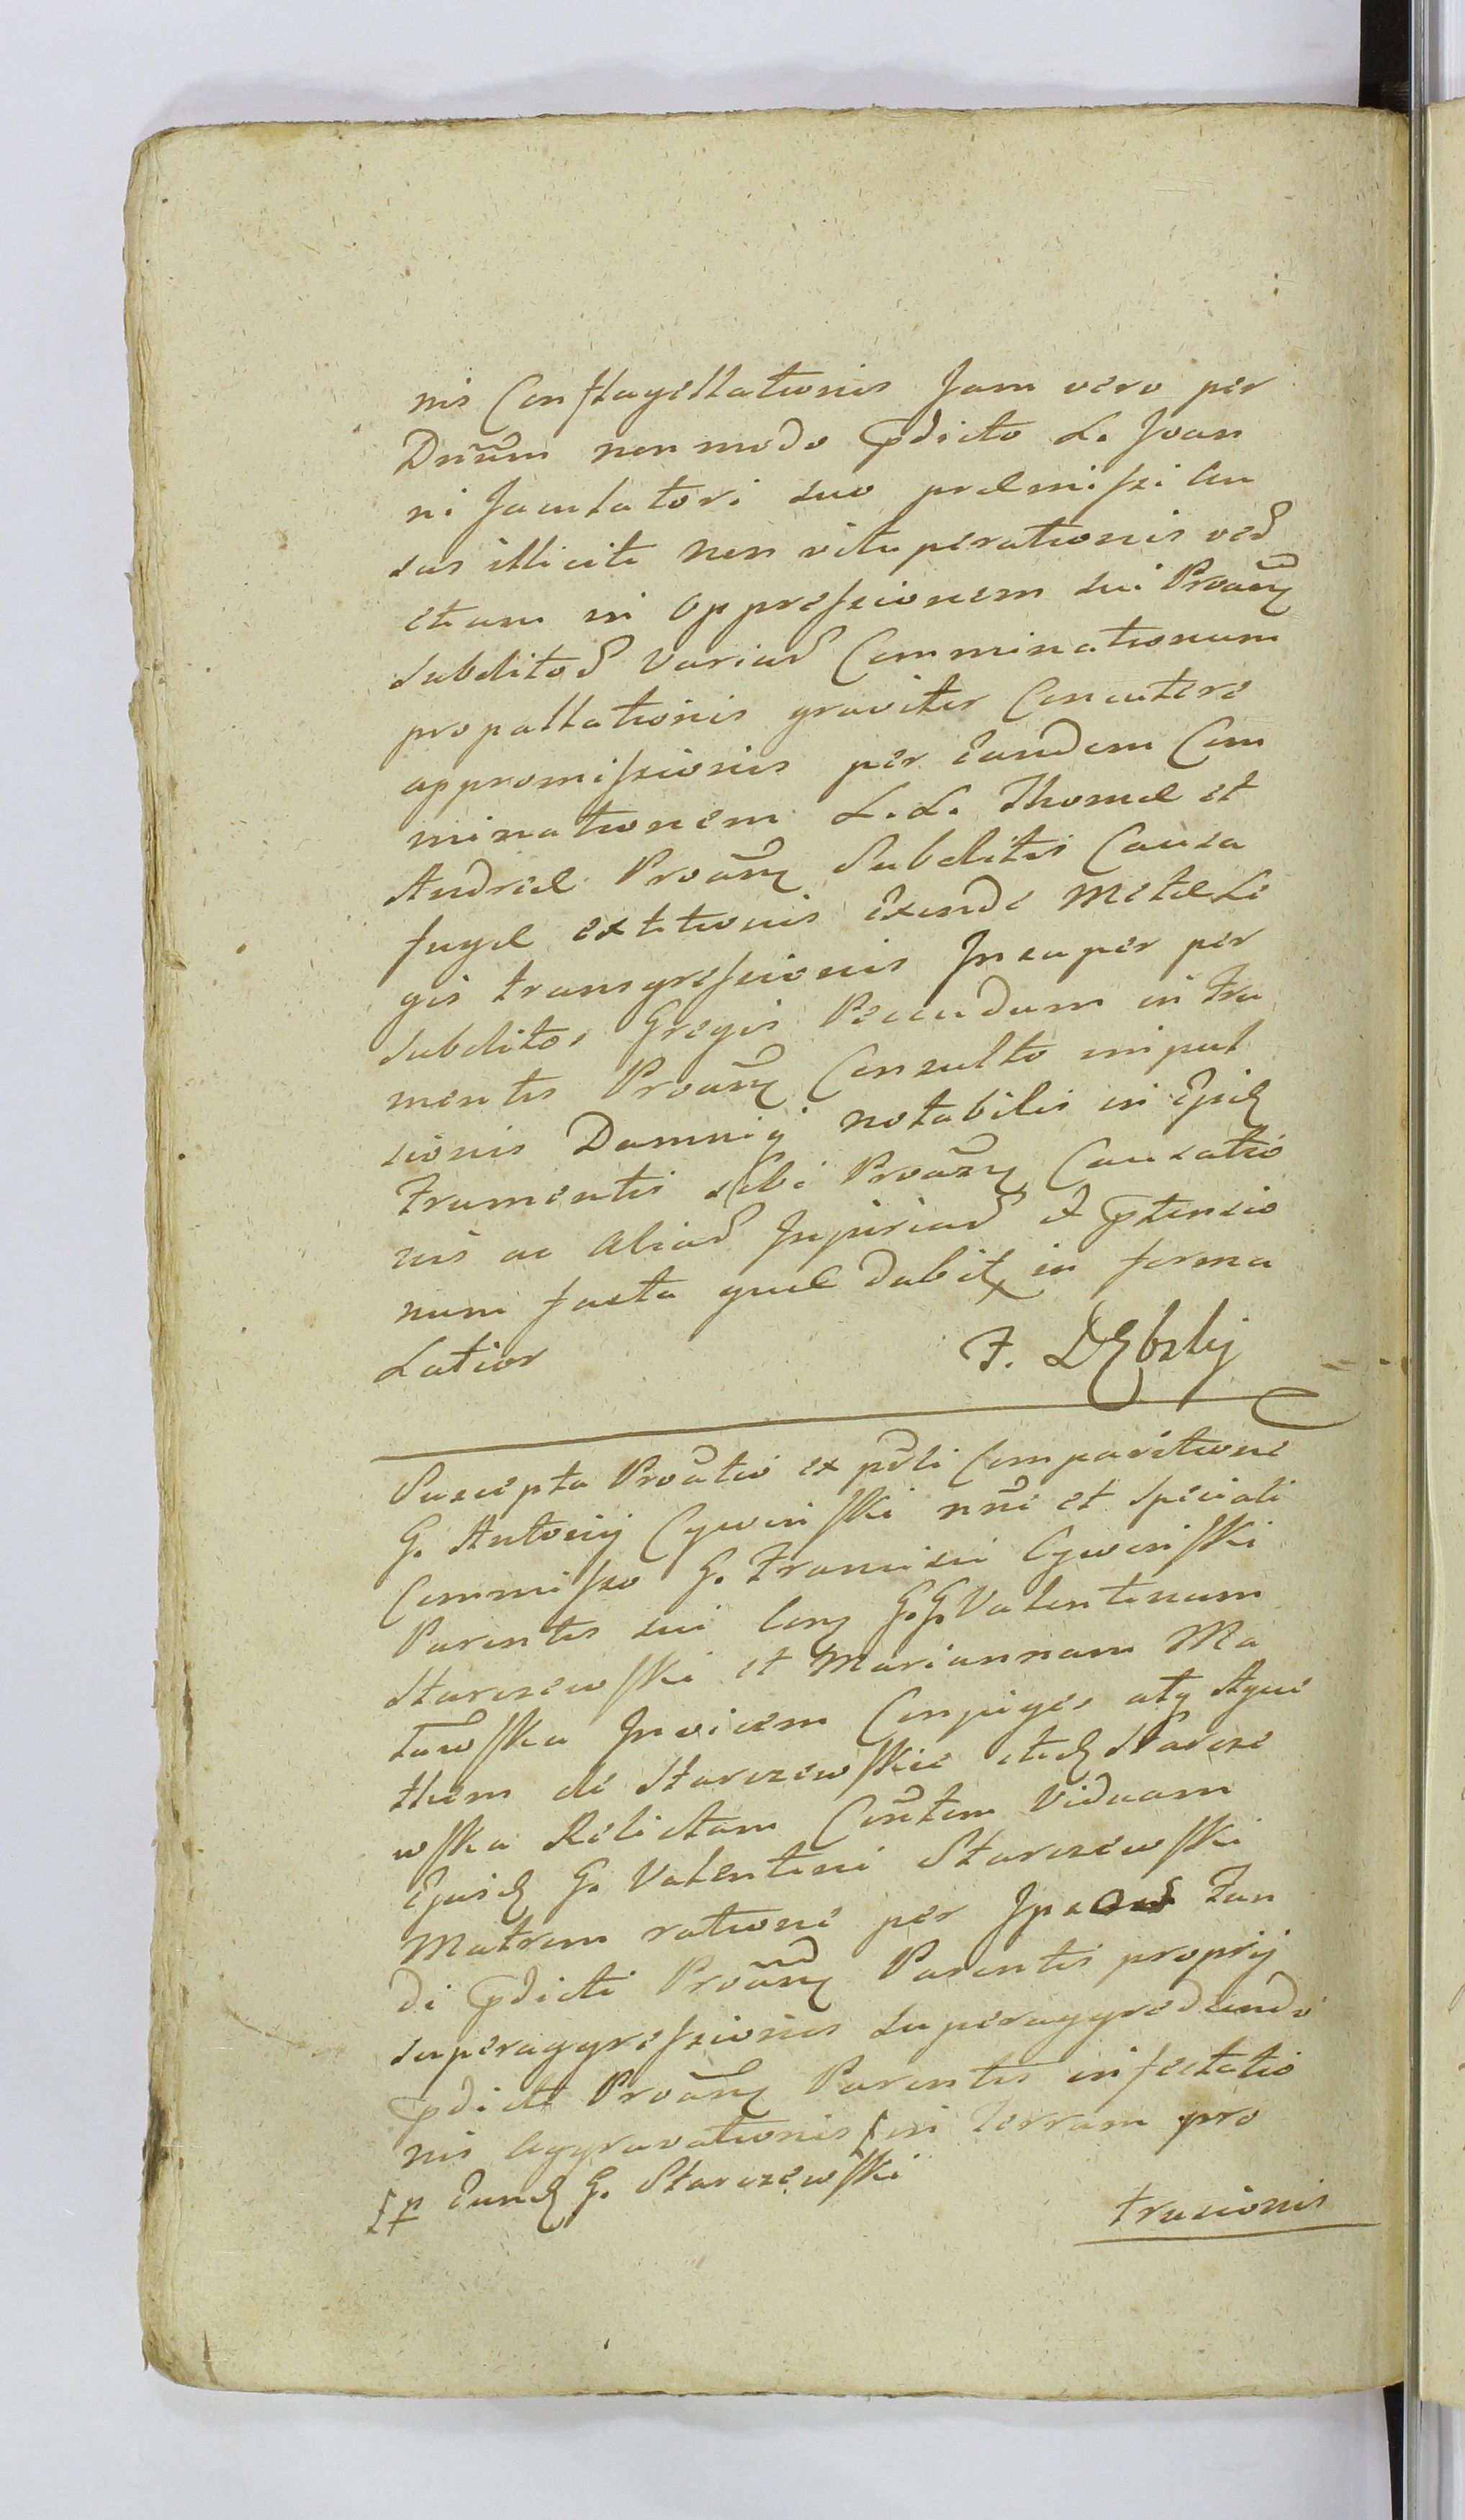 nis Conflagellationis Jam vero per
Dnum non modo pdicto L. Joan
ni Jaculatori suo praemissi Cau
sas illiciti non vituperationis ved
etiam in oppressionem sui Proan
subditos Varias Comminationum
propallationis graviter Concutere
appromissionis per Eandem Com
minationem L. L. Thomae et
Andreae Proan Subditis Causa
fugae extitionis Exinde Metae Le
gis transgressionis Insuper per
subditos Gregis Pecudum in Fru
mentis Proan Consulto impul
sionis Damniq notabilis in Ejusd
Frumentis sibi Proan Causatio
nis ac Alias Injurias et ptensio
num facta quae dabit in forma
Latior F. DEbski
Suscepta Proatio ex psli Comparitione
G. Antonij Cywinski nni et speciali
Commisso G. Francisci Cywinski
Parentis sui Con G.G. Valentinum
Starczewski et Mariannam Ma
Invicem Conjuges atq Agne
them de Starczewskie itid Starcze
wska Relictam Viduam
Ejusd G. Valentini Starczewski
Matrem ratione per Fun
di pdicti Proan Parentis proprij
superaggressionis superaggrediendo
pdicti Proan Parentis infectatio
nis Aggravationis in Terram pro
p Eund G. Starczewski
trusionis